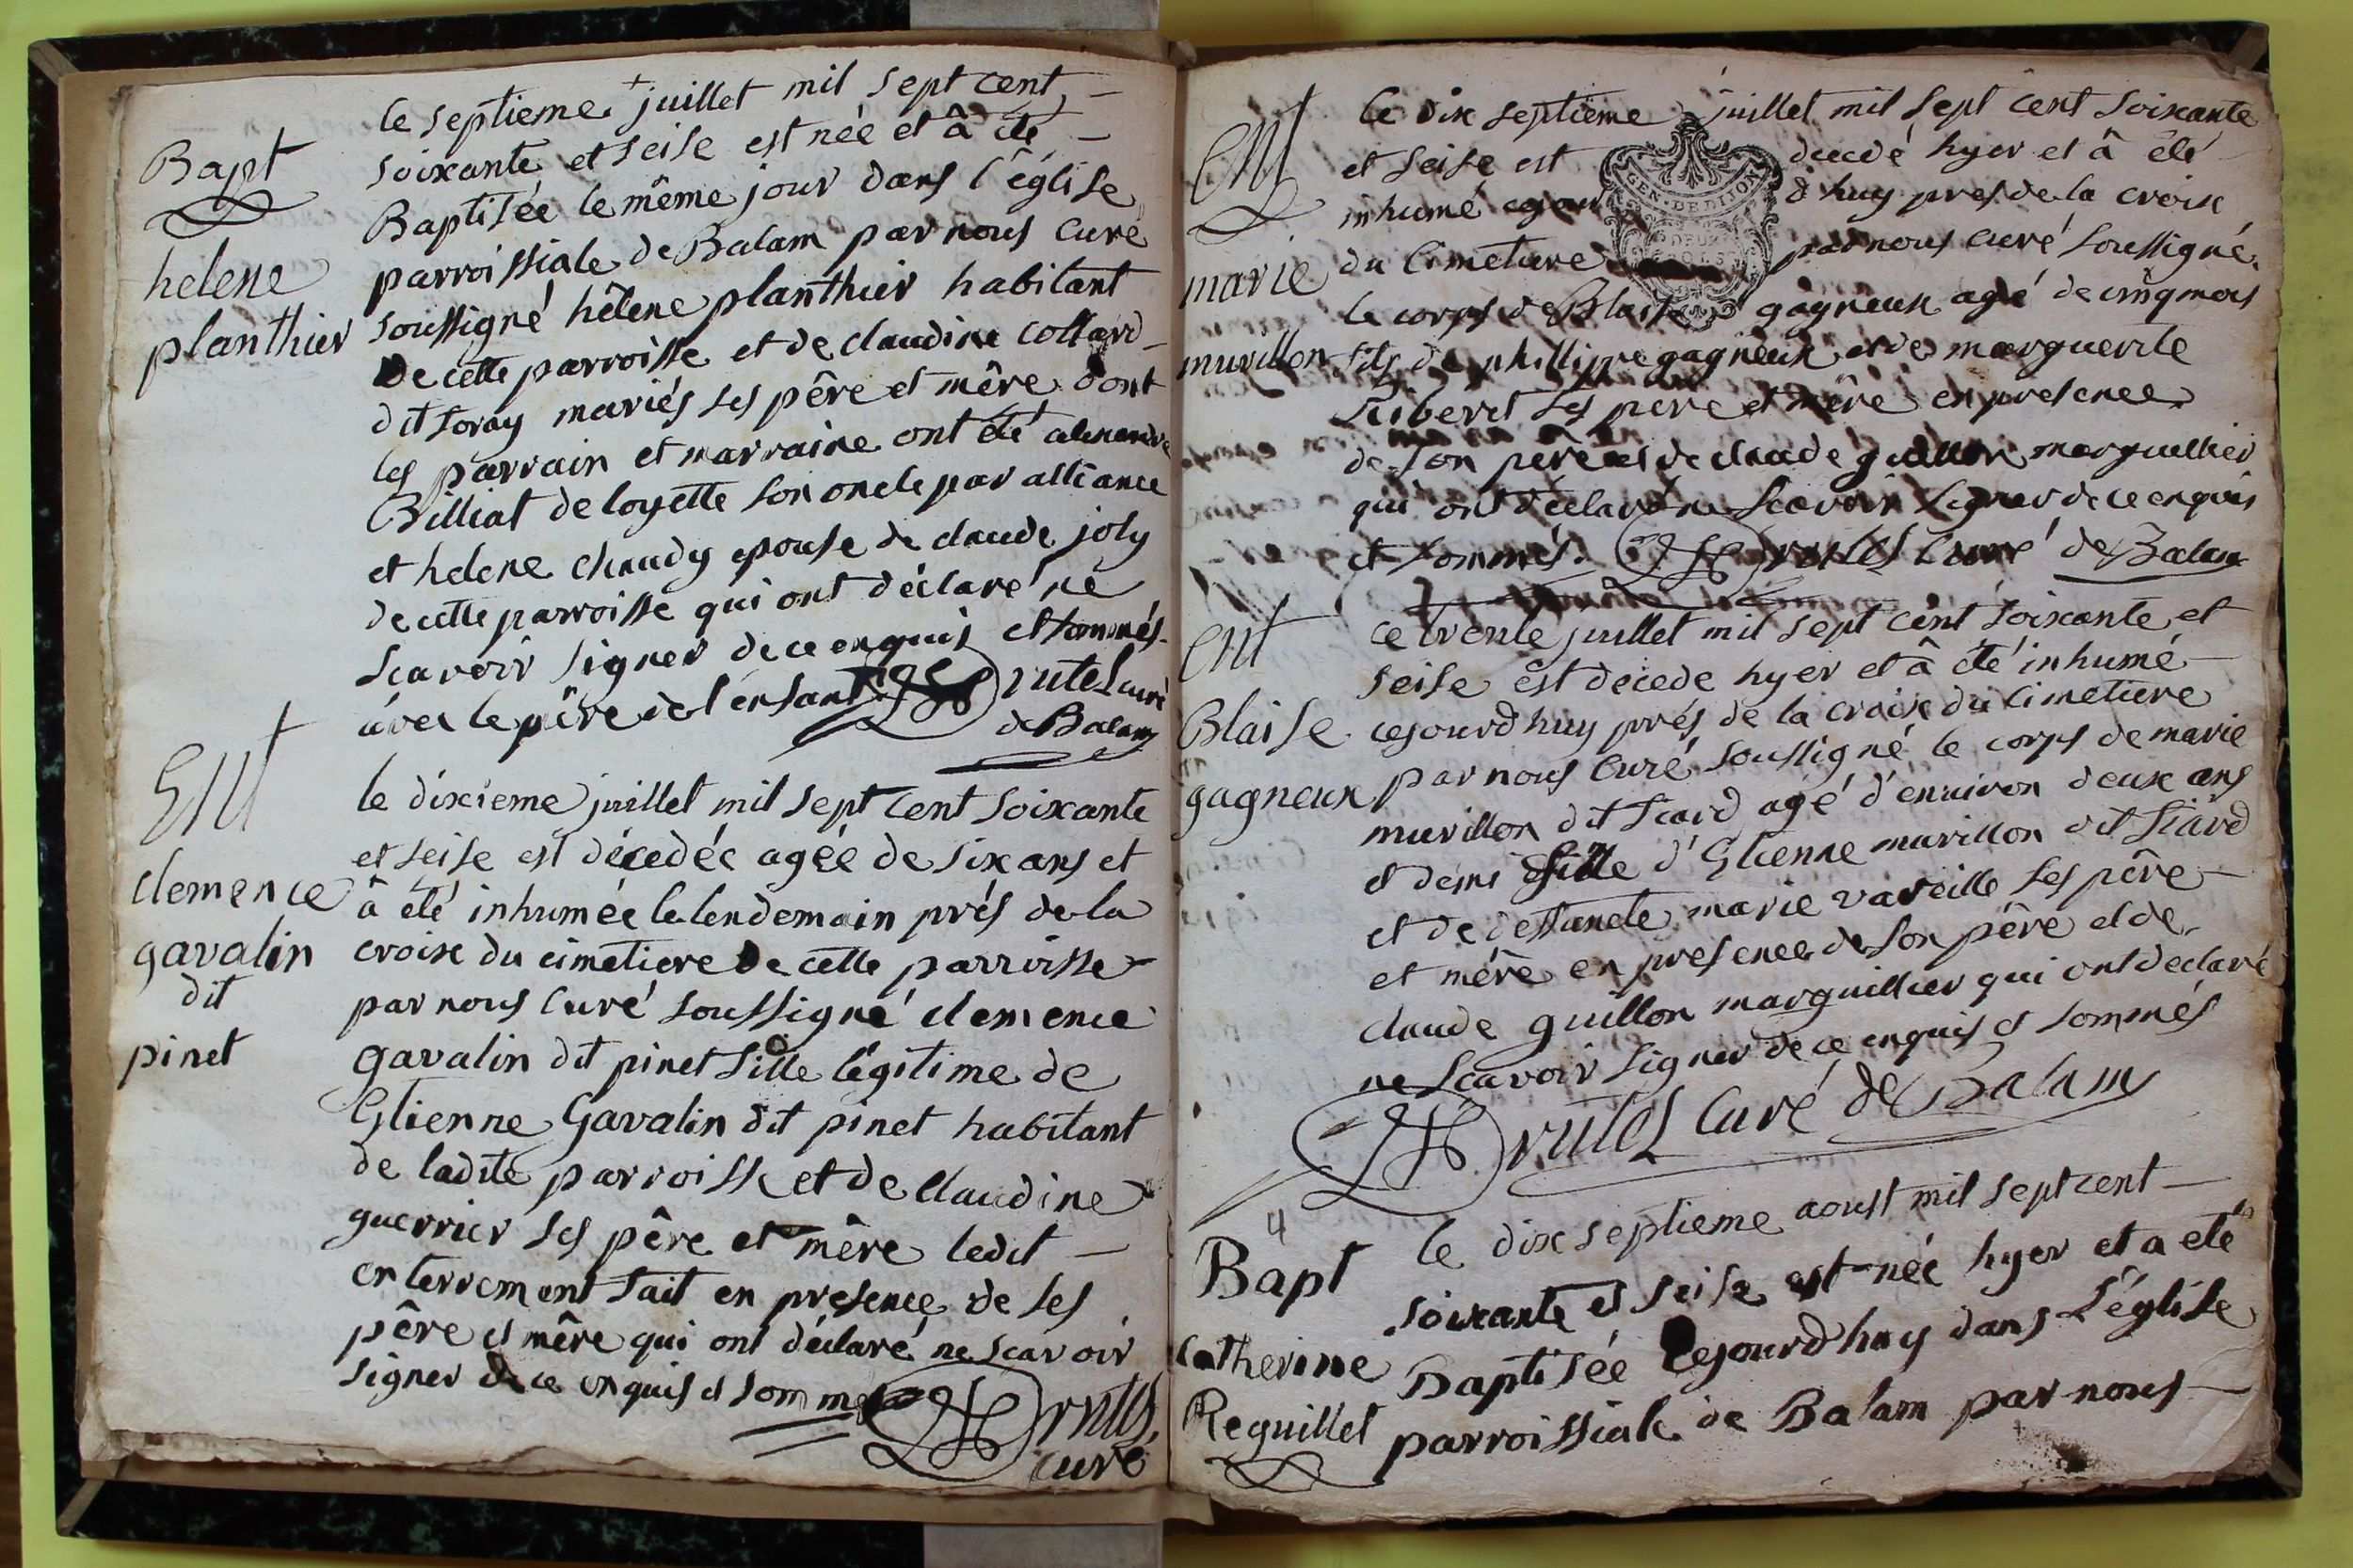 Bapt
helene
planthier
le septieme + juillet mil sept cent –
soixante et seise est née et â été –
Baptisée le même jour dans l'église
parroissiale de Balam par nous curé
soussigné hêlene planthier habitant
De cette parroisse et de claudine collard –
dit Soray mariés ses pêre et mêre dont
les parrain et marraine ont été alexandre
Billiat de loyette son oncle par alliance
et helene chaudy epouse de claude joly
de cette parroisse qui ont déclaré ne
scavoir signer de ce enquis et sommés.
avec le pêre de l'enfant Drutel curé
de Balam
Ent
clemence
gavalin
dit
pinet
le dixieme juillet mil sept cent soixante
et seise est décedée agée de six ans et
â été inhumée le lendemain prés de la
croix du cimetiere De cette parroisse
par nous curé soussigné clemence
gavalin dit pinet fille légitime de
Etienne Gavalin dit pinet habitant
de ladite parroisse et de claudine
guerrier ses pêre et mêre ledit –
enterrement fait en presence de ses
pêre et mêre qui ont déclaré ne scavoir
signer de ce enquis et sommés Drutel
curé
Ent
marie
murillon
le dix septieme juillet mil sept cent soixante
et seise est decedé hyer et â été
inhumé cejour d'huy pres de la croix
du Cimetiere par nous curé soussigné
le corps de Blaise gagneux agé de cinq mois
fils de phillippe gagneux et de marguerite
Ribert ses pere et mêre en presence
de son pêre et de claude guillon marguillier
qui ont déclaré ne scavoir signer de ce enquis
et sommés. Drutel Curé de Balam
Ent
Blaise
gagneux
ce trente juillet mil sept cent soixante et
seise est decede hyer et â été inhumé –
cejourd'huy prés de la croix du Cimetiere
par nous Curé soussigné le corps de marie
murillon dit Siard agé d'environ deux ans
et demi fille d'Etienne murillon dit Siard
et de deffuncte marie vareille ses pêre –
et mêre en presence de son pêre et de
claude guillon marguillier qui ont declaré
ne scavoir signer de ce enquis et sommés
Drutel Curé de Balam
4
Bapt
Catherine
Reguillet
le dix septieme aoust mil sept cent –
soixante et seise est née hyer et a eté
Baptisée Cejourd'huy dans L'église
parroissiale de Balam par nous –
GEN. DE DIJON